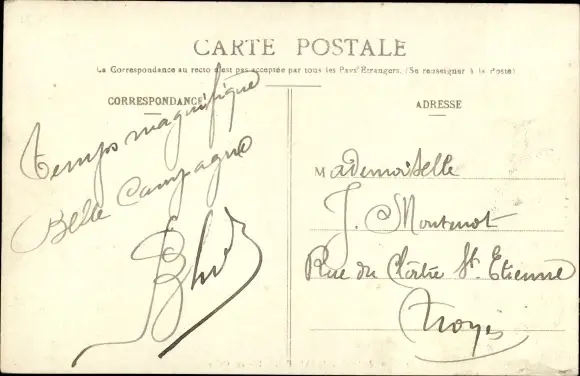 CARTE POSTALE
La Correspondance au recto n'est pas acceptée par tous les Pays Étrangers. (Se renseigner à la Poste)
CORRESPONDANCE
Temps magnifique
Belle Campagne
ADRESSE
Mademoiselle
J. Montenot
Rue du Cloître St. Etienne
Troyes